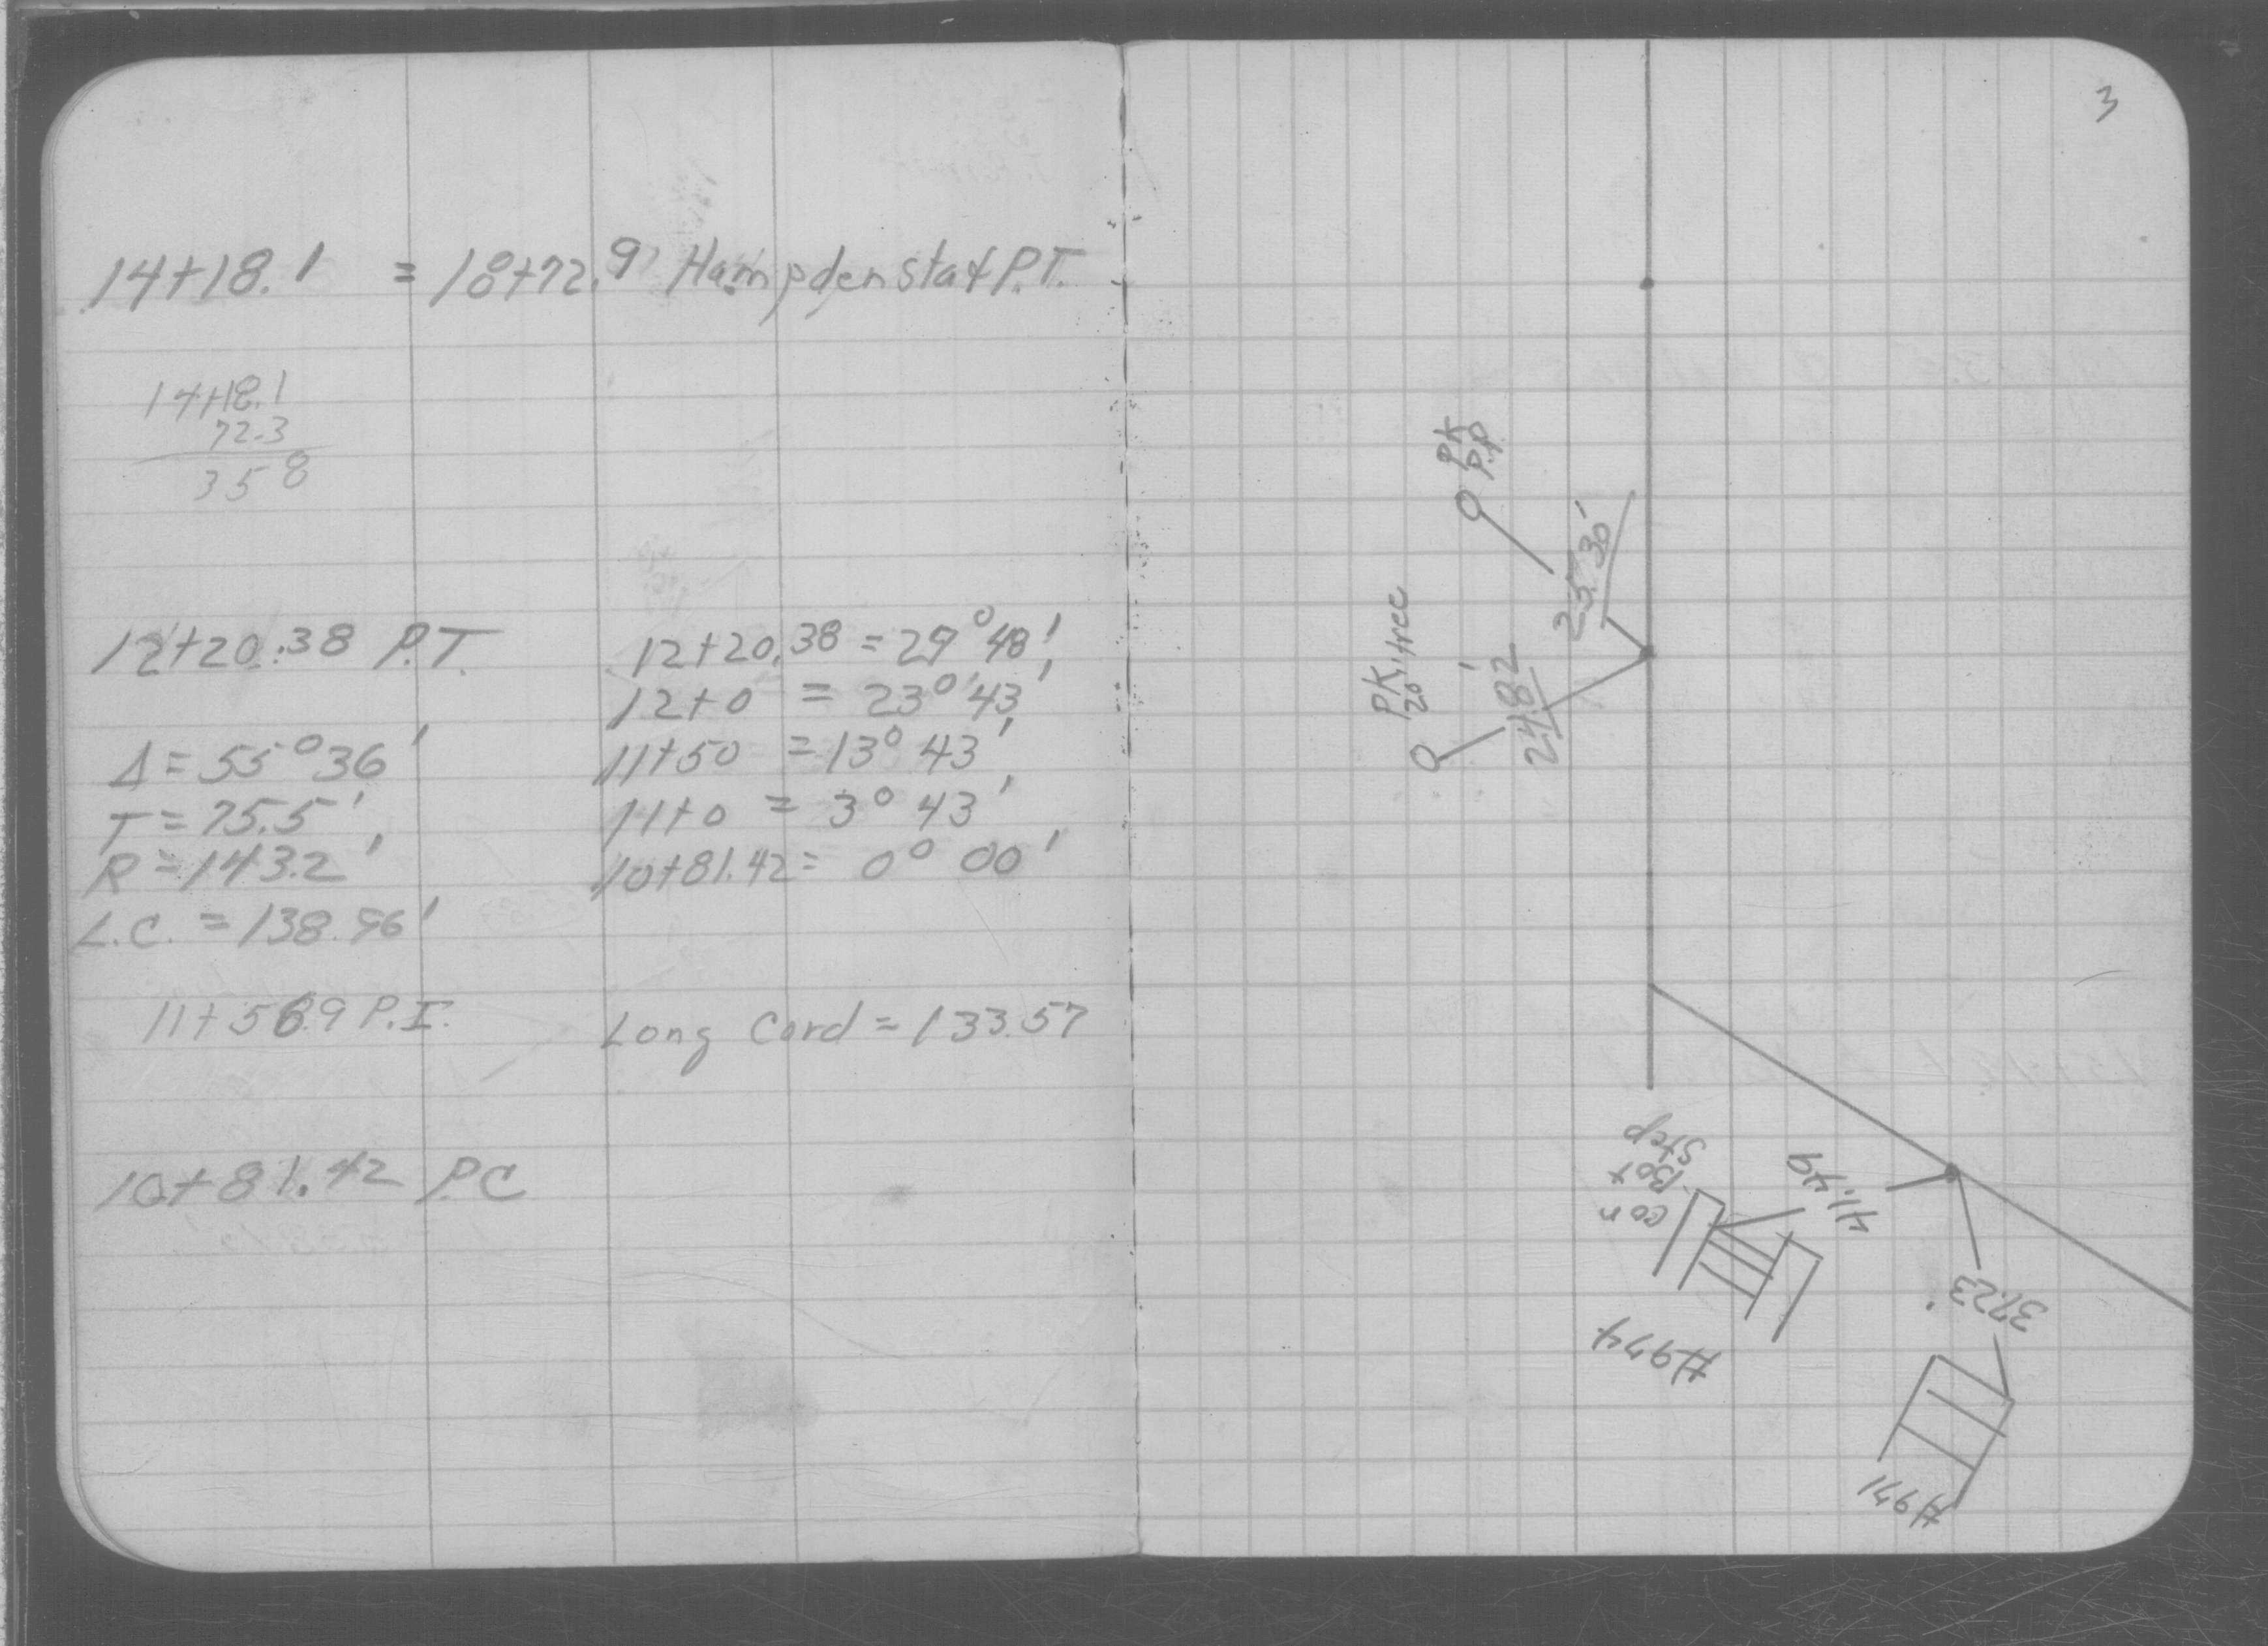 3
14+18.1 = 18+72.9 Hampden sta & P.T.
14+18.1
72.3
358
12+20.38 P.T.
12+20.38 = 29°48'
12+0 = 23°43'
Δ = 55°36'
11+50 = 13°43'
T = 75.5'
11+0 = 3°43'
R = 143.2'
10+81.42 = 0°00'
L.C. = 138.96'
11+56.9 P.I.
Long Cord = 133.57
10+81.42 P.C
PK
P.P
25.30'
PK
20" tree
24.82'
cor
Bot
Step
41.49
#974
37.23'
#971